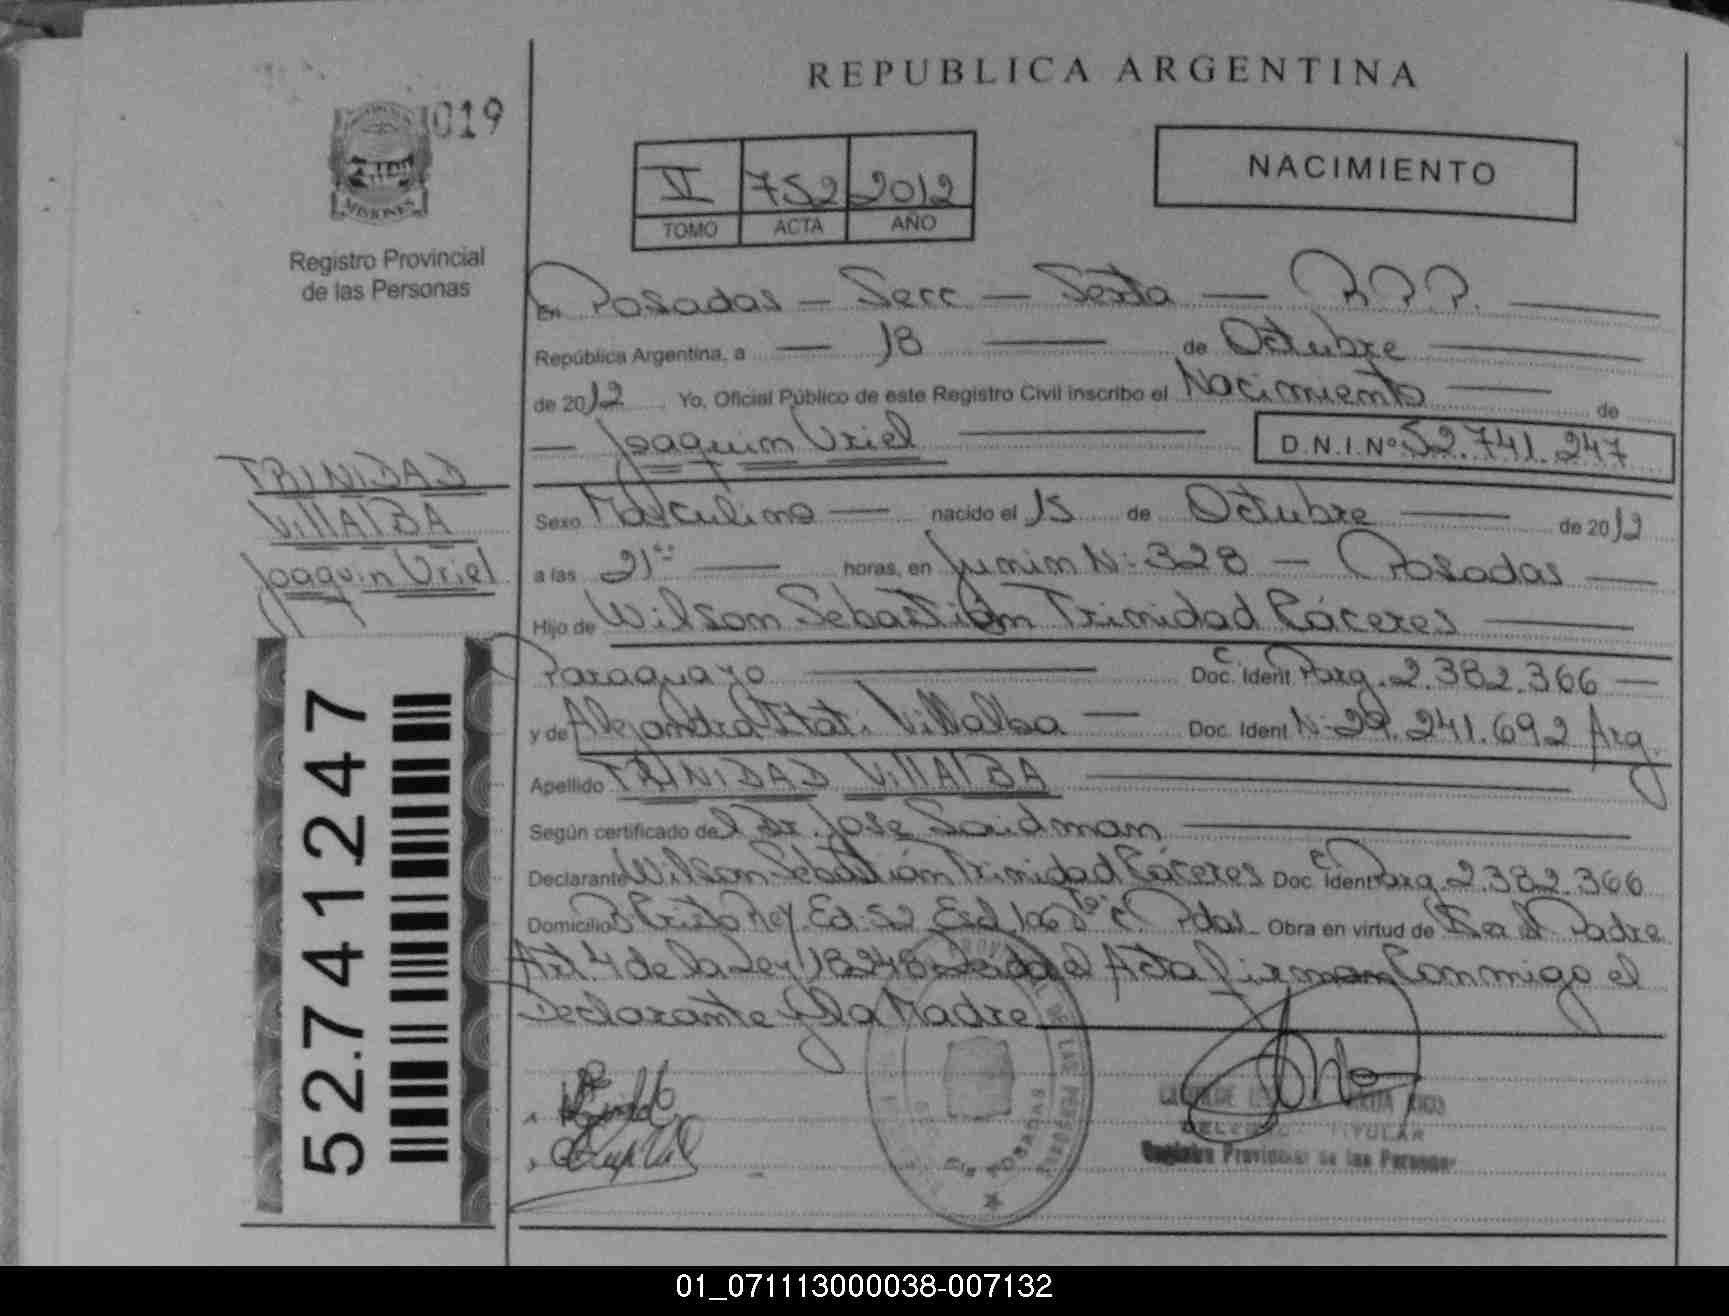 REPUBLICA ARGENTINA
019
MISIONES
Registro Provincial
de las Personas
II 752 2012
TOMO ACTA AÑO
NACIMIENTO
En Posadas — Secc — Sexta — R.P.P.
República Argentina, a — 18 — de Octubre
de 2012 Yo, Oficial Público de este Registro Civil inscribo el Nacimiento — de
— Joaquin Uriel — D.N.I. Nº 52.741.247
TRINIDAD
VillAlBA
Joaquin Uriel
Sexo Masculino — nacido el 15 de Octubre — de 2012
a las 21 — horas, en Junin N: 328 — Posadas —
Hijo de Wilson Sebastián Trinidad Cáceres —
Paraguayo — Doc. Ident C. Parg. 2.382.366 —
y de Alejandra Itatí Villalba — Doc. Ident N: 29.241.692 Arg.
Apellido TRINIDAD VillAlBA
Según certificado del Dr. Jose Saidman —
Declarante Wilson Sebastián Trinidad Cáceres Doc. Ident C. Parg. 2.382.366
Domicilio B Cristo Rey. Ed. 52 Esc. Pdas Obra en virtud de Ser el Padre
Art 4 de la Ley 18248 Leída el Acta firman Conmigo el
Declarante y la Madre
52.741.247
DE LAS PERSONAS
POSADAS
TITULAR
Registro Provincial de las Personas
01_071113000038-007132